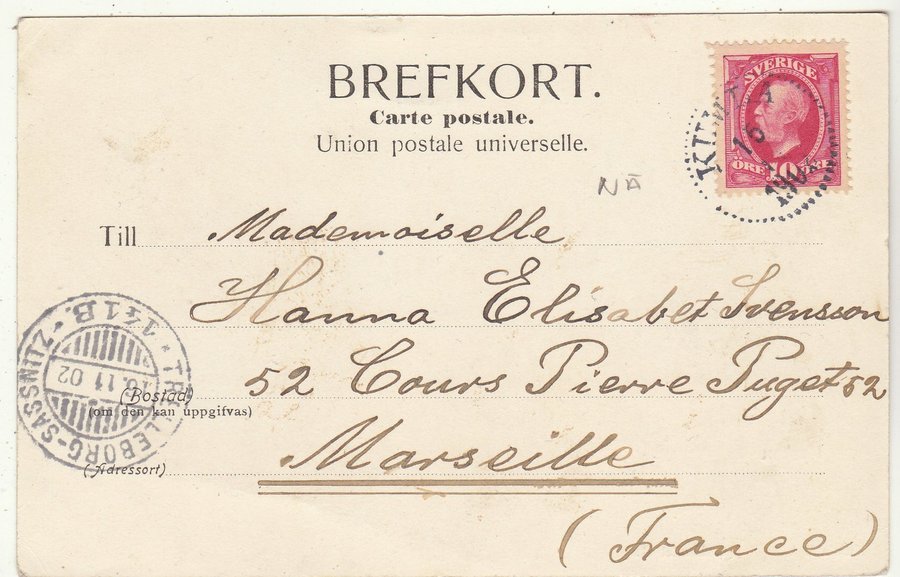 BREFKORT.
Carte postale.
Union postale universelle.
SVERIGE
ÖRE 10 ÖRE
NÄ
Till Mademoiselle
Hanna Elisabet Svensson
52 Cours Pierre Puget 52
(Bostad)
(om den kan uppgifvas)
Marseille
(Adressort)
(France)
TRELLEBORG-SASSNITZ
11 02